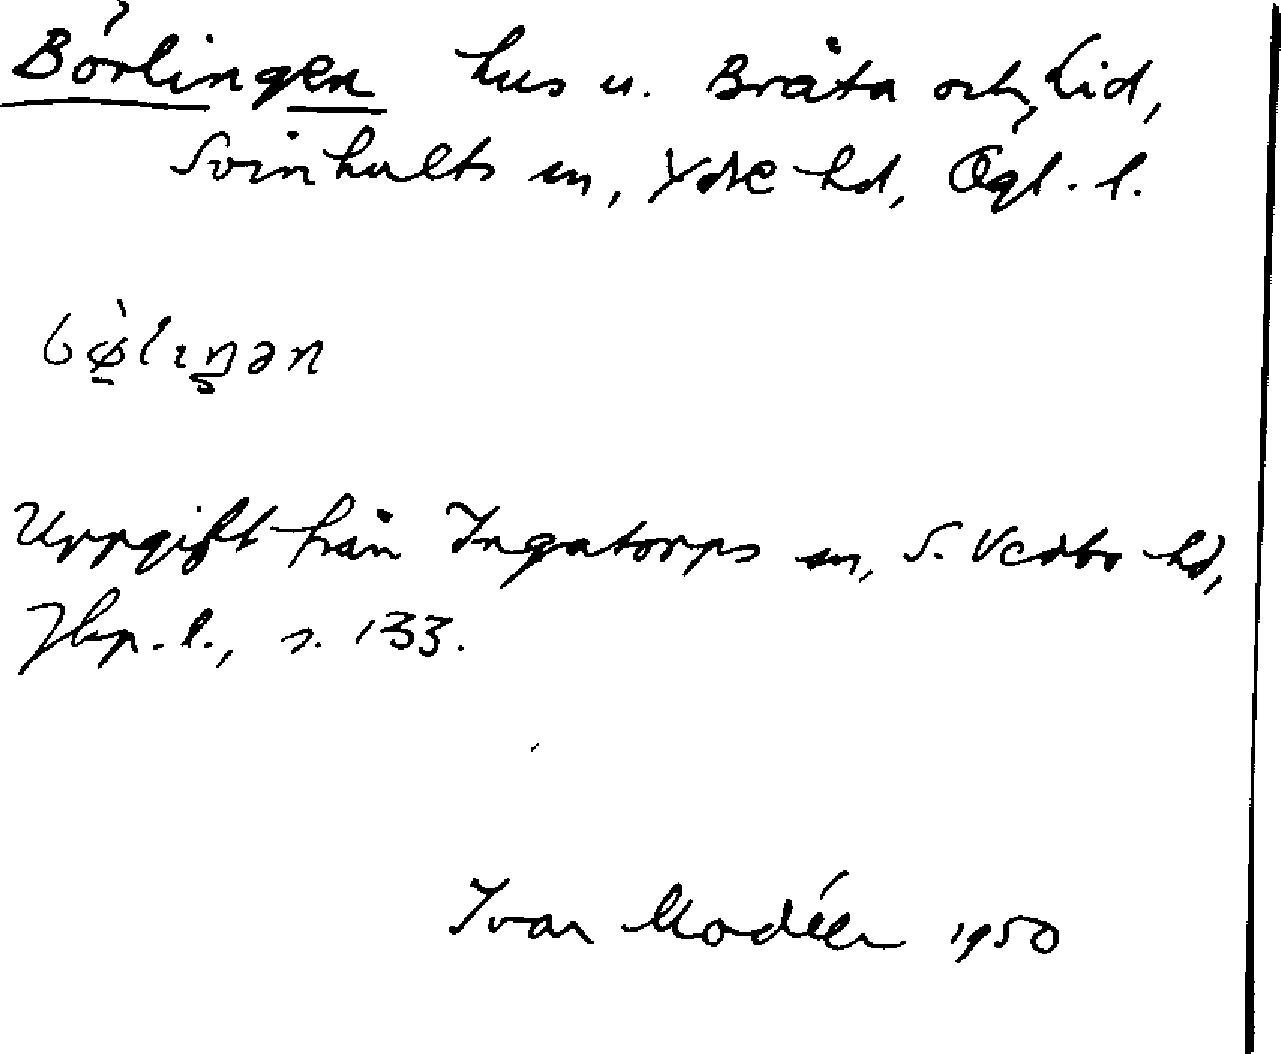 Börlingen hus u. Bråta och Lid,
Svinhults sn, Ydre hd, Ögl. l.
bø̀lıŋən
Uppgift från Ingatorps sn, S. Vedbo hd,
Jkp. l., s. 133.
Ivar Modéer 1950